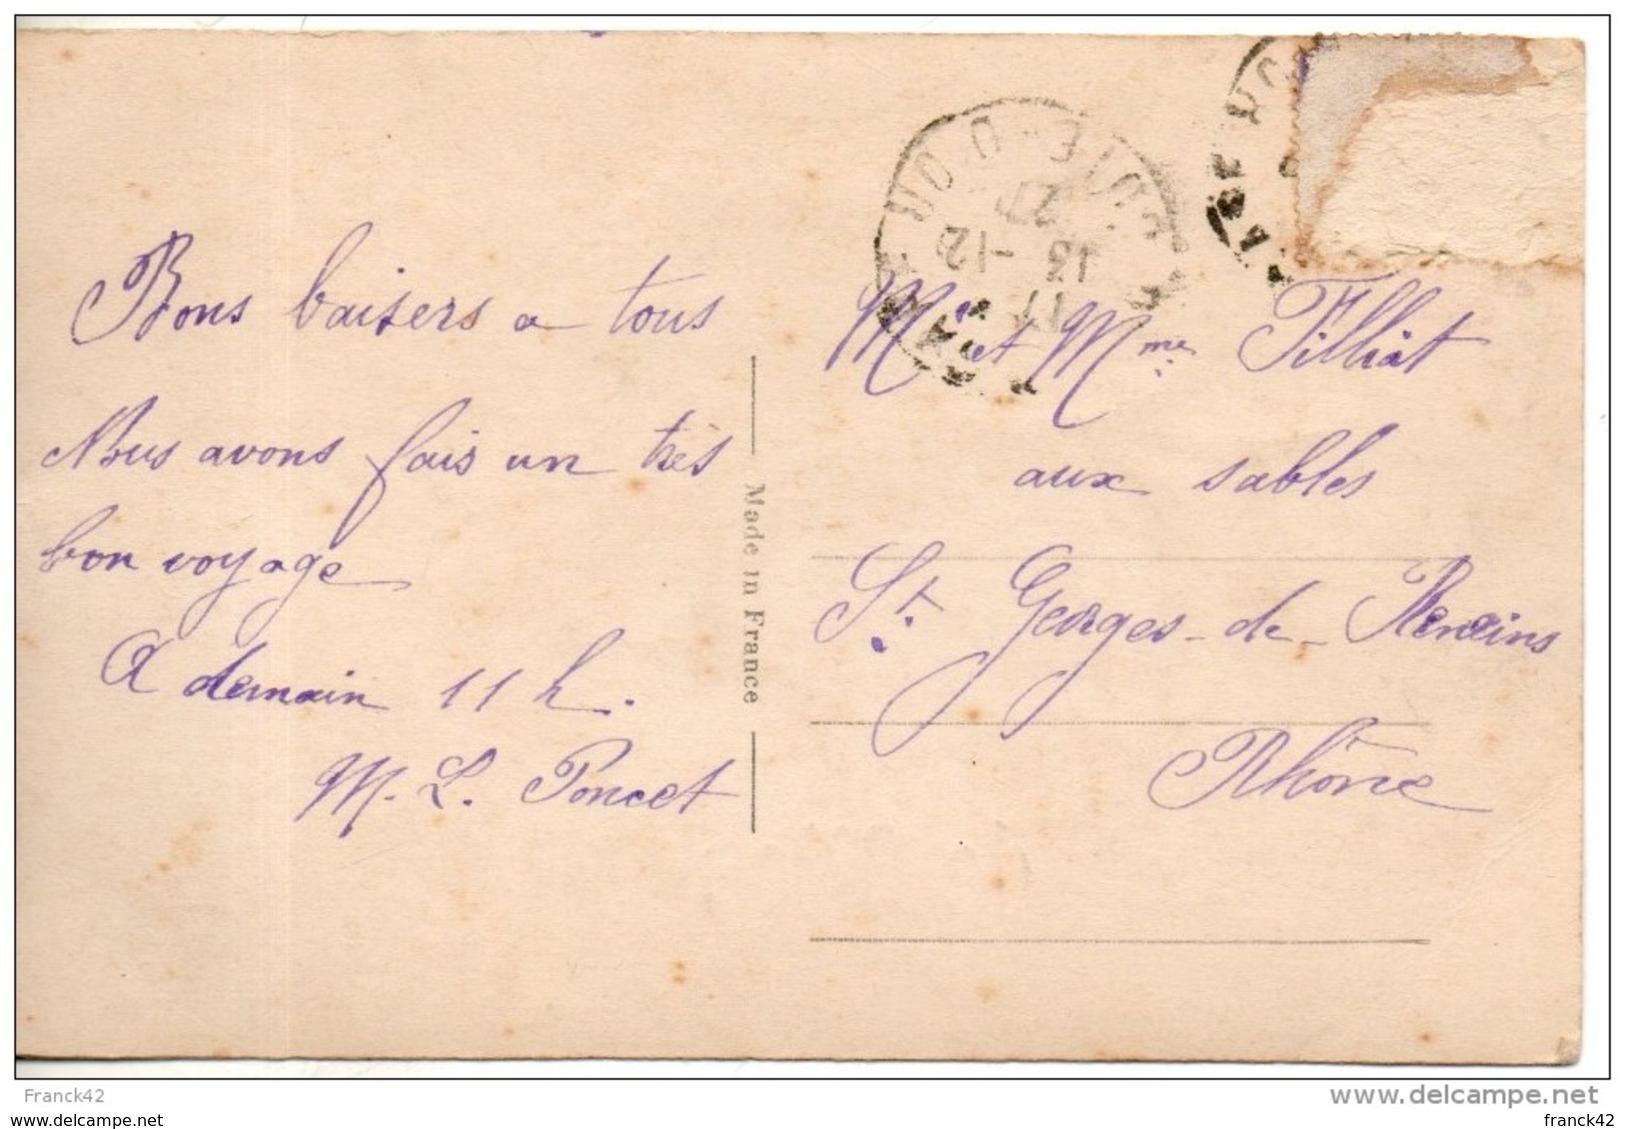 Bons baisers a tous
Nous avons fais un très
bon voyage
A demain 11 h.
M. L. Poncet
Made in France
17
13 -12
Mr et Mme Filliat
aux sables
St. Georges-de-Reneins
Rhône
Franck42
delcampe.net
franck42
franck42